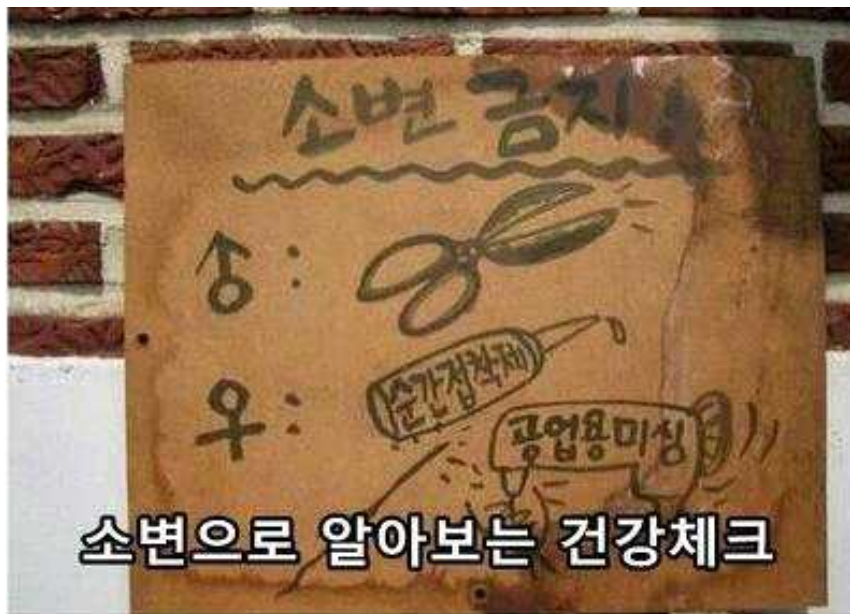 소변 금지
♂ :
순간접착제
♀ :
공업용미싱
소변으로 알아보는 건강체크